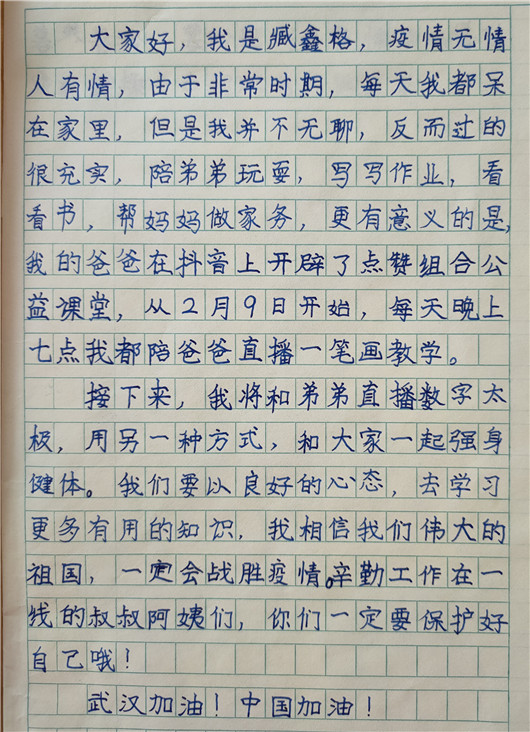 大家好，我是臧鑫格，疫情无情
人有情，由于非常时期，每天我都呆
在家里，但是我并不无聊，反而过的
很充实，陪弟弟玩耍，写写作业，看
看书，帮妈妈做家务，更有意义的是，
我的爸爸在抖音上开辟了点赞组合公
益课堂，从2月9日开始，每天晚上
七点我都陪爸爸直播一笔画教学。
接下来，我将和弟弟直播数字太
极，用另一种方式，和大家一起强身
健体。我们要以良好的心态，去学习
更多有用的知识，我相信我们伟大的
祖国，一定会战胜疫情。辛勤工作在一
线的叔叔阿姨们，你们一定要保护好
自己哦！
武汉加油！中国加油！